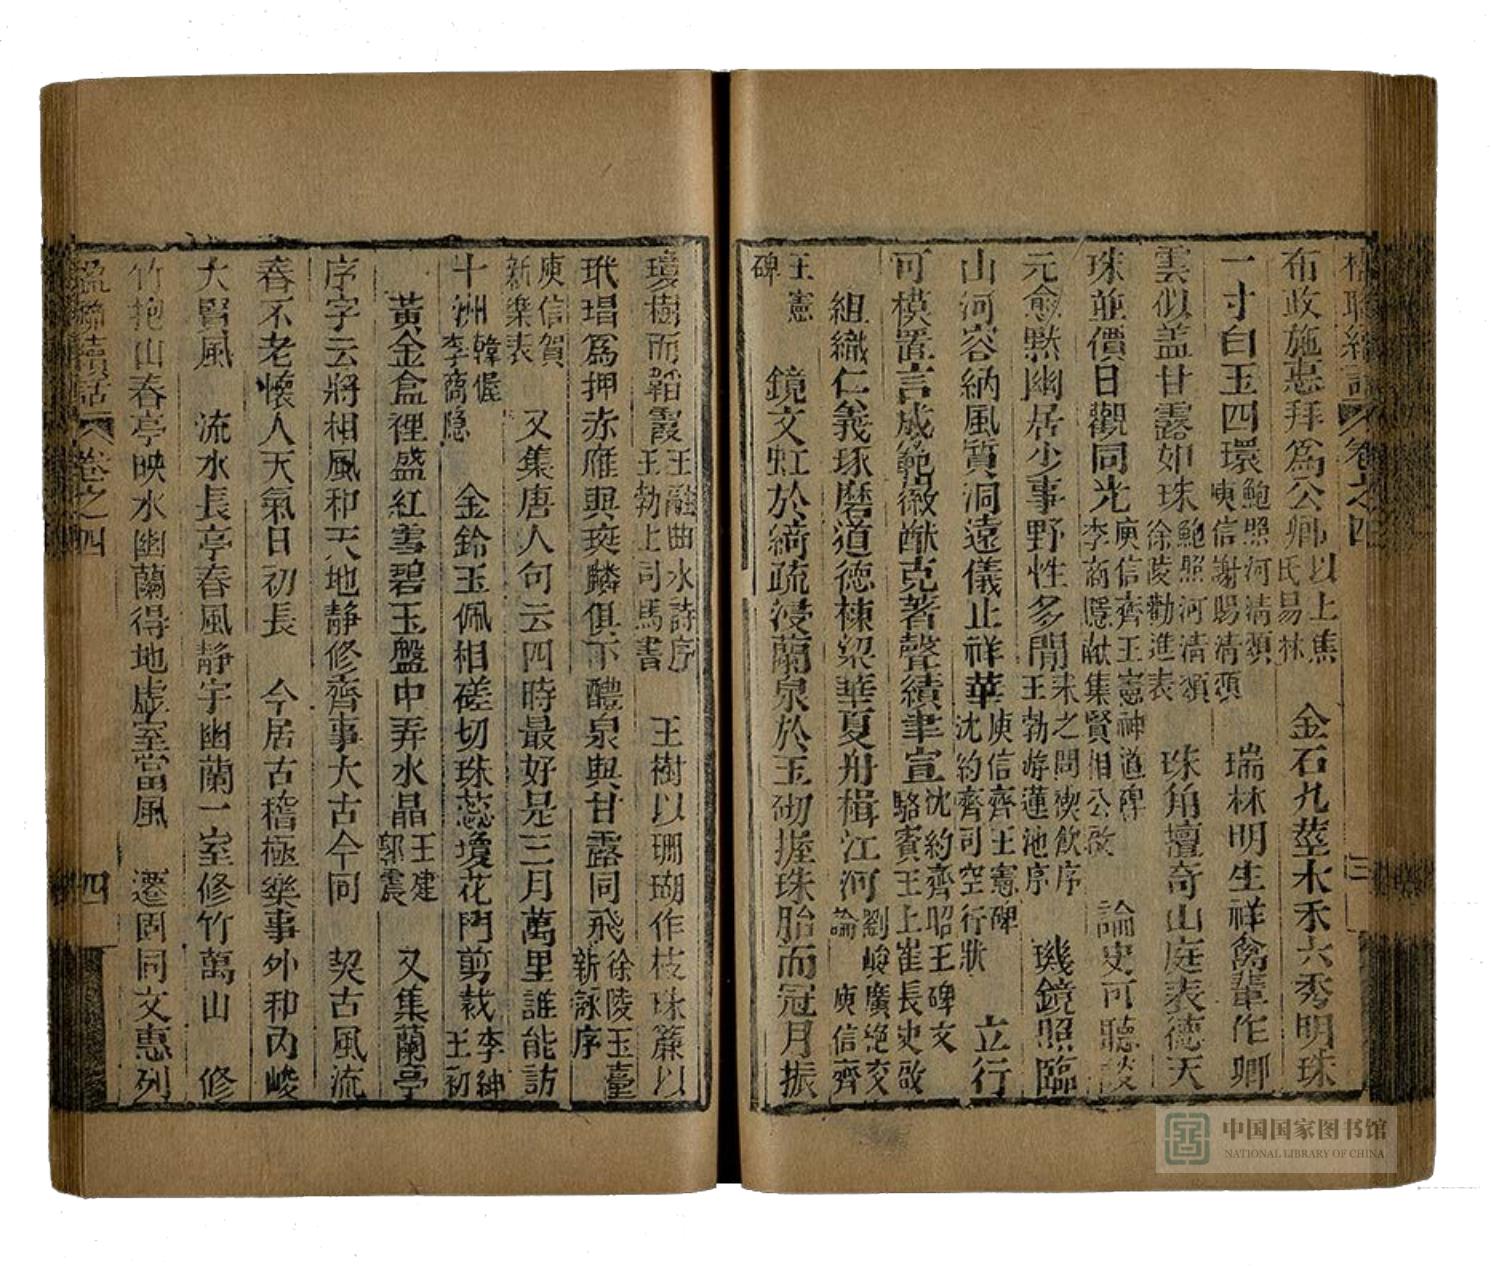 楹聯續話 卷之四 三
布政施惠拜爲公卿以上焦氏易林 金石九莖木禾六秀明珠
一寸白玉四環鮑照河清頌庾信謝賜清頌 瑞林明生祥禽輩作卿
雲似蓋甘露如珠鮑照河清頌徐陵勸進表 珠角壇奇山庭表德天
珠並價日觀同光庾信齊王憲神道碑李商隱獻集賢相公啟 論史可聽談
元愈黙幽居少事野性多閒宋之問禊飲序王勃游蓮池序 璣鏡照臨
山河容納風質洞遠儀止祥華庾信齊王憲碑沈約齊司空行狀 立行
可模置言成範徽猷克著聲績聿宣沈約齊昭王碑文駱賓王上崔長史啟
組織仁義琢磨道德棟梁華夏舟楫江河劉峻廣絕交論庾信齊
王憲碑 鏡文虹於綺疏浸蘭泉於玉砌握珠胎而冠月振
瓊樹而韜霞王融曲水詩序王勃上司馬書 玉樹以珊瑚作枝珠簾以
玳瑁爲押赤雁與班麟俱下醴泉與甘露同飛徐陵玉臺新詠序
庾信賀新樂表 又集唐人句云四時最好是三月萬里誰能訪
十洲韓偓李商隱 金鈴玉佩相磋切珠蕊瓊花鬥剪裁李紳王初
黃金盒裡盛紅雪碧玉盤中弄水晶王建郭震 又集蘭亭
序字云將相風和天地靜修齊事大古今同 契古風流
春不老懷人天氣日初長 今居古稽極樂事外和內峻
大賢風 流水長亭春風靜宇幽蘭一室修竹萬山 修
竹抱山春亭映水幽蘭得地虛室當風 遷固同文惠列
楹聯續話 卷之四 四
中国国家图书馆
NATIONAL LIBRARY OF CHINA